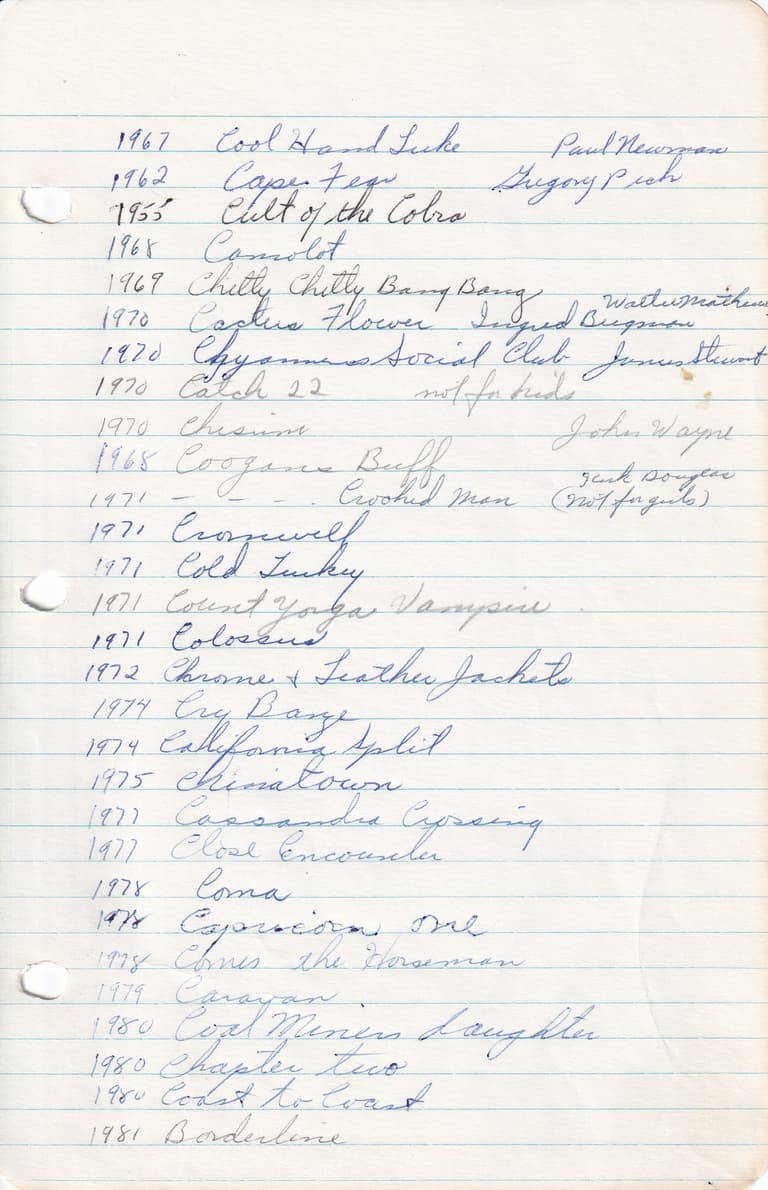 1967 Cool Hand Luke Paul Newman
1962 Cape Fear Gregory Peck
1955 Cult of the Cobra
1968 Camolot
1969 Chitty Chitty Bang Bang
Walter Mathew
1970 Cactus Flower Ingred Bergman
1970 Chyannes Social Club James Stewart
1970 Catch 22 not for kids
1970 Chisum John Wayne
1968 Coogans Buff
Kirk Douglas
1971 - - - . Crooked Man (Not for girls)
1971 Cromwell
1971 Cold Turkey
1971 Count Yorga Vampire .
1971 Colossus
1972 Chrome & Leather Jackets
1974 Cry Banze
1974 California Split
1975 Chinatown
1977 Cassandra Crossing
1977 Close Encounter
1978 Coma
1978 Capricorn one
1978 Comes the Horseman
1979 Caravan
1980 Coal Miners daughter
1980 Chapter two
1980 Coast to Coast
1981 Borderline